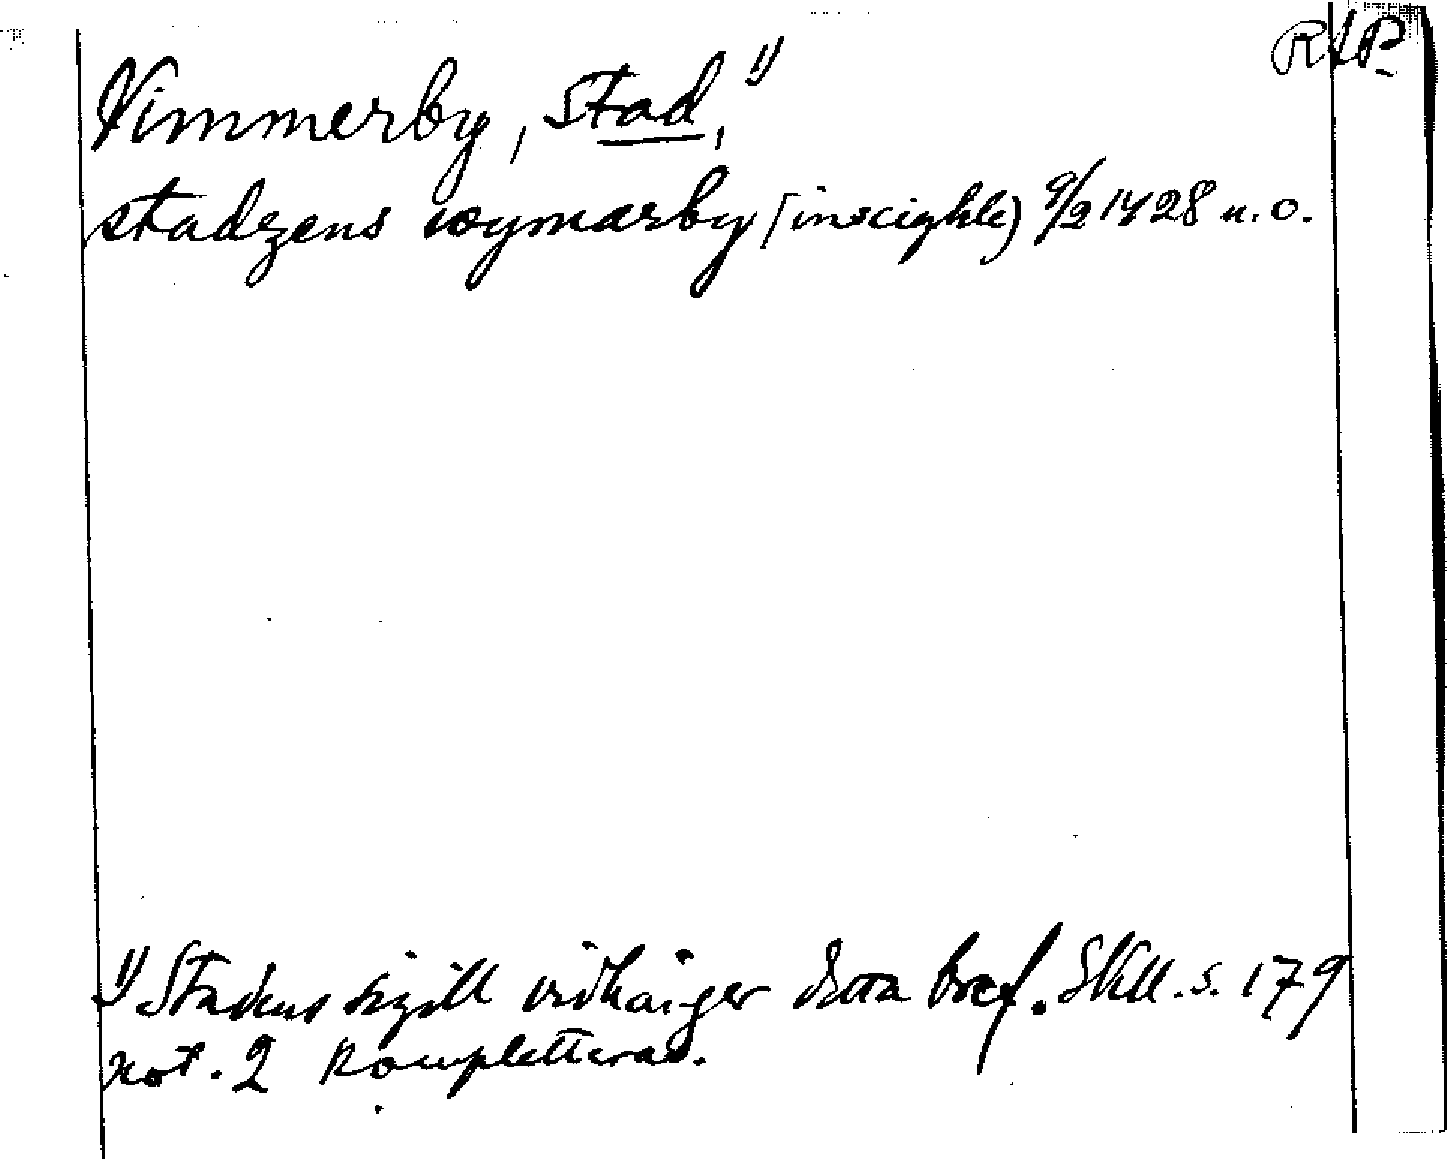 RAP
Vimmerby, stad, 1)
stadzens wymærby (inscighle) 9/2 1428 u. o.
1) Stadens sigill vidhänger detta bref. SkU. s. 179
not. 2 kompletteras.